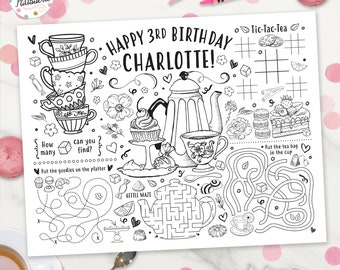 HAPPY 3RD BIRTHDAY
CHARLOTTE!
Tic-Tac-Tea
How many
can you find?
Put the goodies on the platter
LITTLE MAZE
Put the tea bag
in the cup